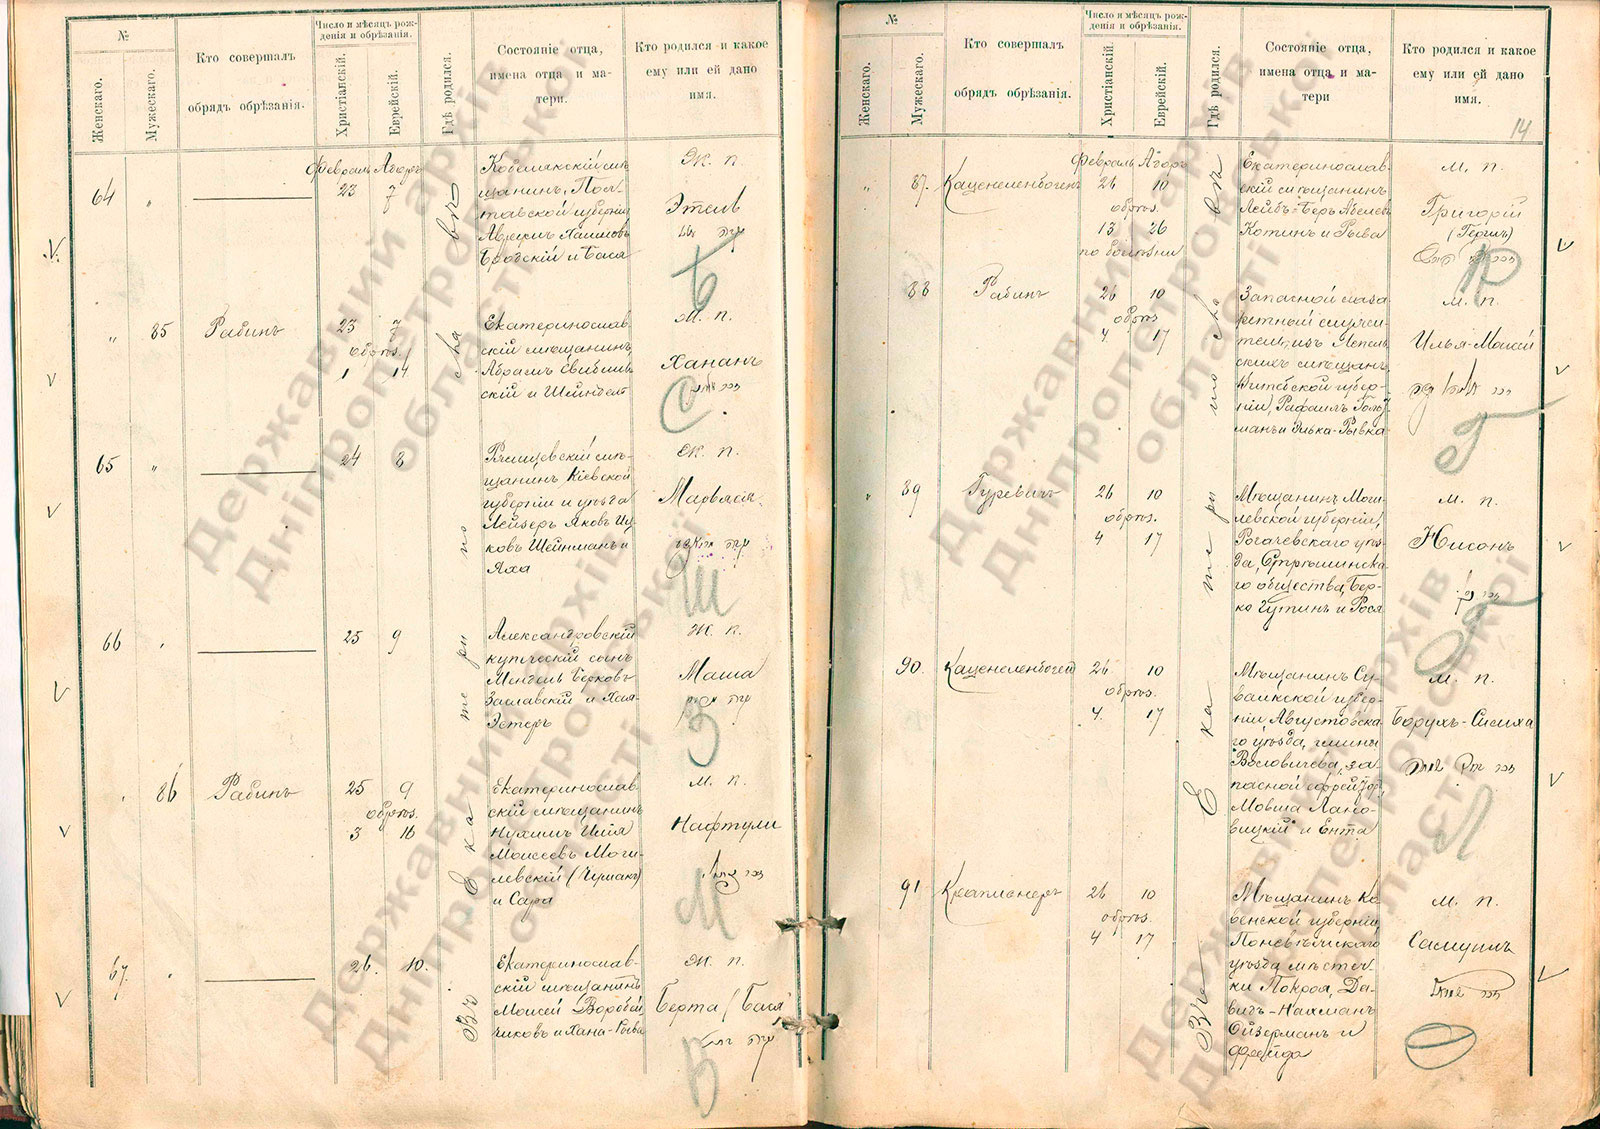 №
Женскаго.
Мужескаго.
Кто совершалъ
обрядъ обрѣзанія.
Число и мѣсяцъ рож-
денія и обрѣзанія.
Христіанскій.
Еврейскій.
Гдѣ родился.
Состояніе отца,
имена отца и ма-
тери.
Кто родился и какое
ему или ей дано
имя.
Въ Екатеринославѣ
64
"
Февраль Адаръ
23 7
Кобелякскій мѣ-
щанинъ, Пол-
тавской губерніи
Аврумъ Хаимовъ
Бродскій и Бася
Ж. п.
Этель
Б
"
85
Рабинъ
23 7
обрѣз.
1 14
Екатеринослав-
скій мѣщанинъ,
Абрамъ
и Шейндель
М. п.
Хананъ
С
65
"
24 8
Ржищевскій мѣ-
щанинъ Кіевской
губерніи и уѣзда
Лейзеръ Яковъ Иц-
ковъ Шейнманъ и
Яха
Ж. п.
Ш
66
25 9
Александровскій
купческій сынъ
Мендель Берковъ
Заславскій и Хая-
Эстеръ
Ж. п.
Маша
З
86
Рабинъ
25 9
обрѣз.
3 16
Екатеринослав-
скій мѣщанинъ
Нухимъ Илія
Моисеевъ Моги-
левскій (Чумакъ)
и Сара
М. п.
Нафтули
М
67.
26. 10.
Екатеринослав-
скій мѣщанинъ
Моисей Воробей-
чиковъ и Хана-Рыва
Ж. п.
Берта (Бася)
В
№
Женскаго.
Мужескаго.
Кто совершалъ
обрядъ обрѣзанія.
Число и мѣсяцъ рож-
денія и обрѣзанія.
Христіанскій.
Еврейскій.
Гдѣ родился.
Состояніе отца,
имена отца и ма-
тери
Кто родился и какое
ему или ей дано
имя.
14
Въ Екатеринославѣ
"
87.
Каценеленбогенъ
Февраль Адаръ
26 10
обрѣз.
13 26
по болѣзни
Екатеринослав-
скій мѣщанинъ
Лейбъ-Беръ Абелевъ
Котинъ и Рыва
м. п.
Григорій
К
88
Рабинъ
26 10
обрѣз.
4 17
Запасной лаза-
ретный служи-
тель, изъ Лепель-
скихъ мѣщанъ,
Витебской губер-
ніи, Рафаилъ Голь-
манъ и Элька-Рывка
м. п.
Илья-Моисей
Г
89
Гуревичъ
26 10
обрѣз.
4 17
Мѣщанинъ Моги-
левской губерніи,
Рогачевскаго уѣз-
да, Стрѣшинска-
го общества, Бер-
ко Гутинъ и Рося
м. п.
Нисонъ
90.
Каценеленбоген
26 10
обрѣз.
4. 17
Мѣщанинъ Су-
валкской губер-
ніи Августовска-
го уѣзда, гмины
Воловичева, за-
пасной ефрейторъ
Мовша Лано-
вицкій и Ента
м. п.
Борухъ-Симха
Л
91
26 10
обрѣз.
4 17
Мѣщанинъ Ко-
венской губерніи,
Поневѣжскаго
уѣзда мѣстеч-
ки Покроя, Да-
видъ-Нахманъ
Ойзерманъ и
Фрейда
м. п.
Самуилъ
О
Державний архів
Дніпропетровської
області